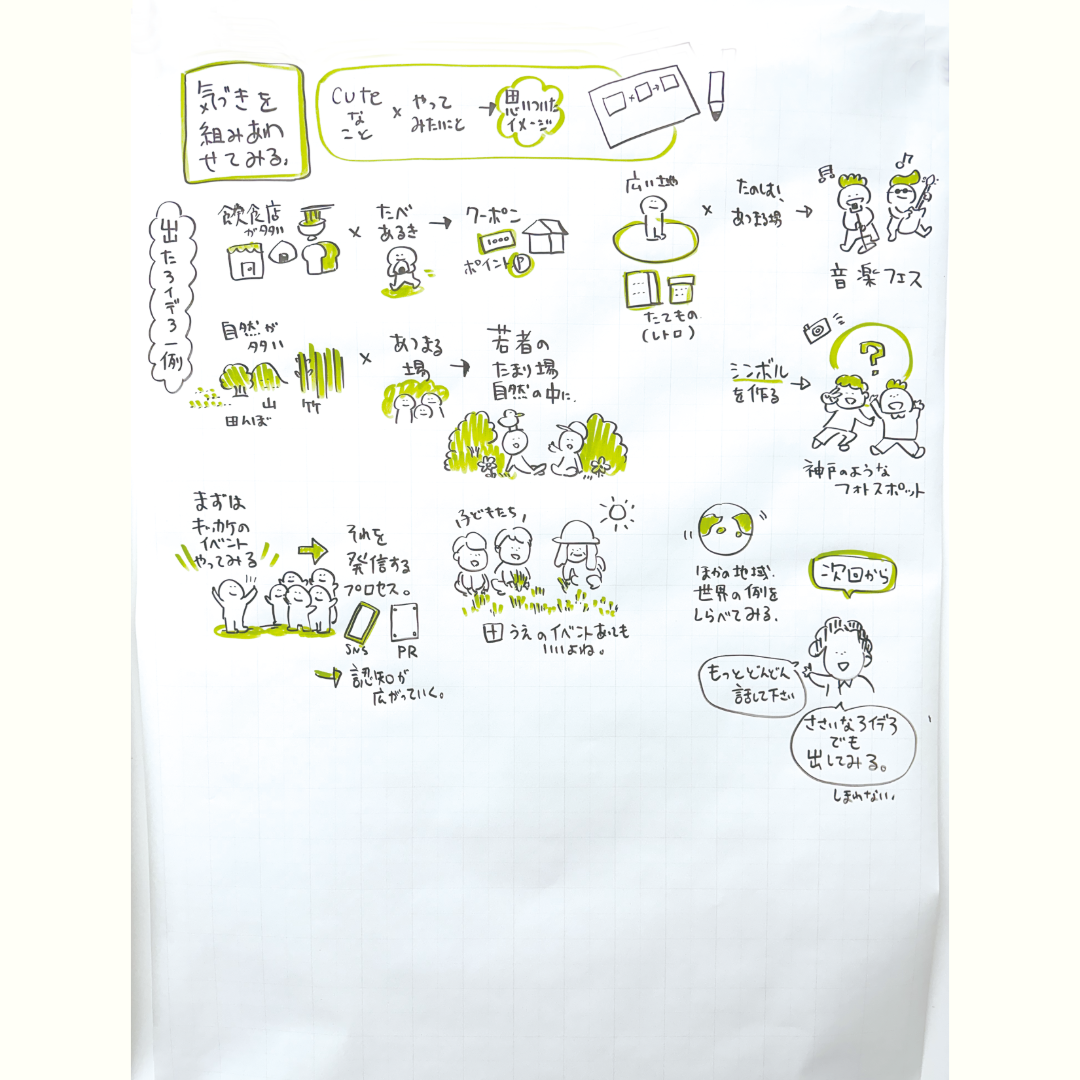 気づきを
組みあわ
せてみる。
cute
な
こと
×
やって
みたいこと
→
思いついた
イメージ
+
→
出たアイデア一例
飲食店
が多い
×
たべ
あるき
→
クーポン
1000
ポイント P
広い土地
×
たのしい!
あつまる場
→
音楽フェス
たてもの
(レトロ)
自然が
多い
山
竹
田んぼ
×
あつまる
場
→
若者の
たまり場
自然の中に。
シンボル
を作る
→
?
神戸のような
フォトスポット
まずは
キッカケの
イベント
やってみる
それを
発信する
プロセス。
SNS
PR
→ 認知が
広がっていく。
子どもたち
田うえのイベントあっても
いいよね。
ほかの地域、
世界の例を
しらべてみる。
次回から
もっとどんどん
話して下さい
ささいなアイデア
でも
出してみる。
しまわない。